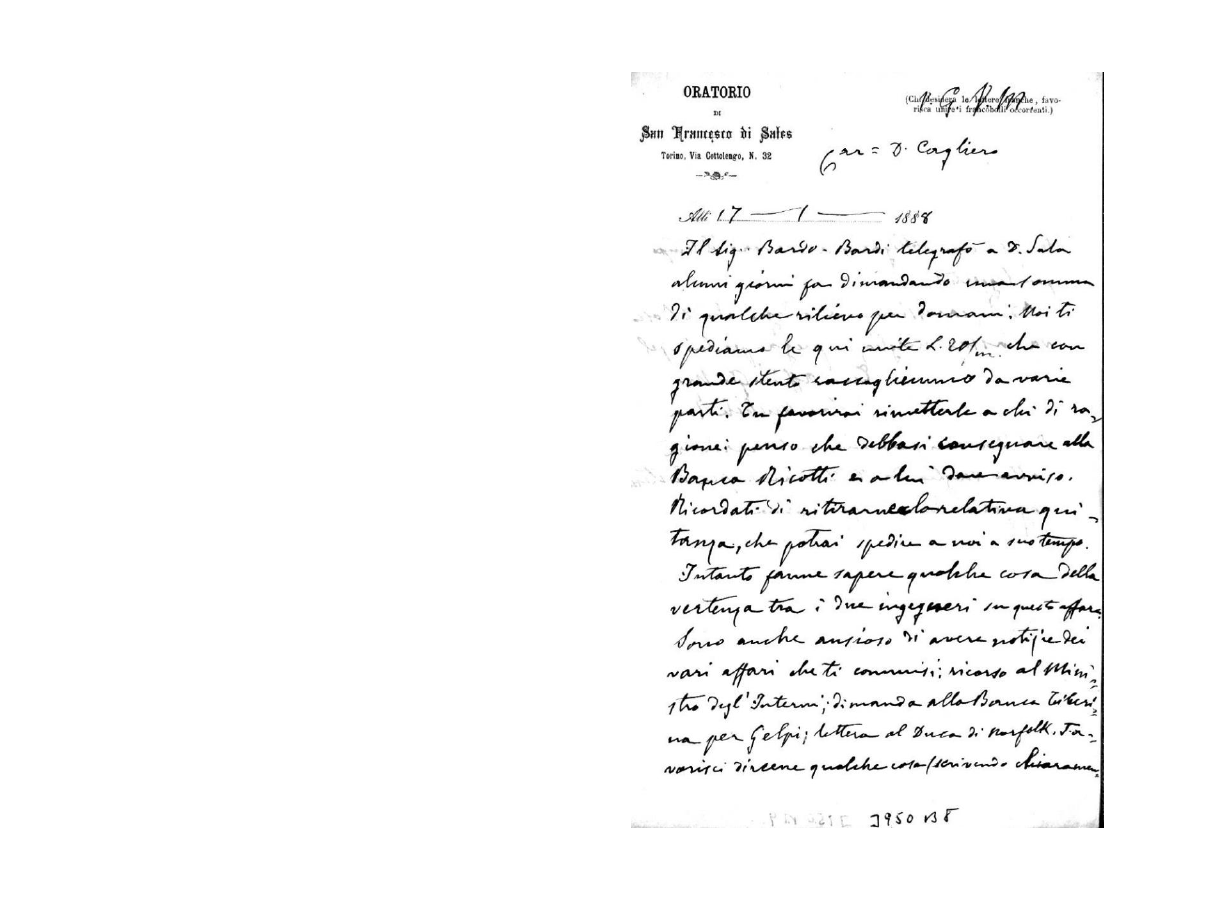 ORATORIO
DI
San Francesco di Sales
Torino, Via Cottolengo, N. 32
(Chi desidera le lettere franche, favo-
risca unire i francobolli occorrenti.)
Car = D. Cagliero
Alli 17 — 1 — 1888
Il Sig. Bardo-Bardi telegrafò a D. Sala
alcuni giorni fa dimandando una somma
di qualche rilievo per domani. Noi ti
spediamo le qui unite L. 20/m. che con
grande stento raccogliemmo da varie
parti. Tu favorirai rimetterle a chi di ra-
gione: penso che debbasi consegnare alla
Banca Ricotti e a lui dare avviso.
Ricordati di ritirarne la relativa qui-
tanza, che potrai spedire a noi a suo tempo.
Intanto fanne sapere qualche cosa della
vertenza tra i due ingegneri su questo affare.
Sono anche ansioso di avere notizie dei
vari affari che ti commisi; ricorso al Mini-
stro degl'Interni; dimanda alla Banca Tiberi-
na per Gelpi; lettera al Duca di Norfolk. Fa-
vorisci dircene qualche cosa (scrivendo chiaramen-
J950 B8